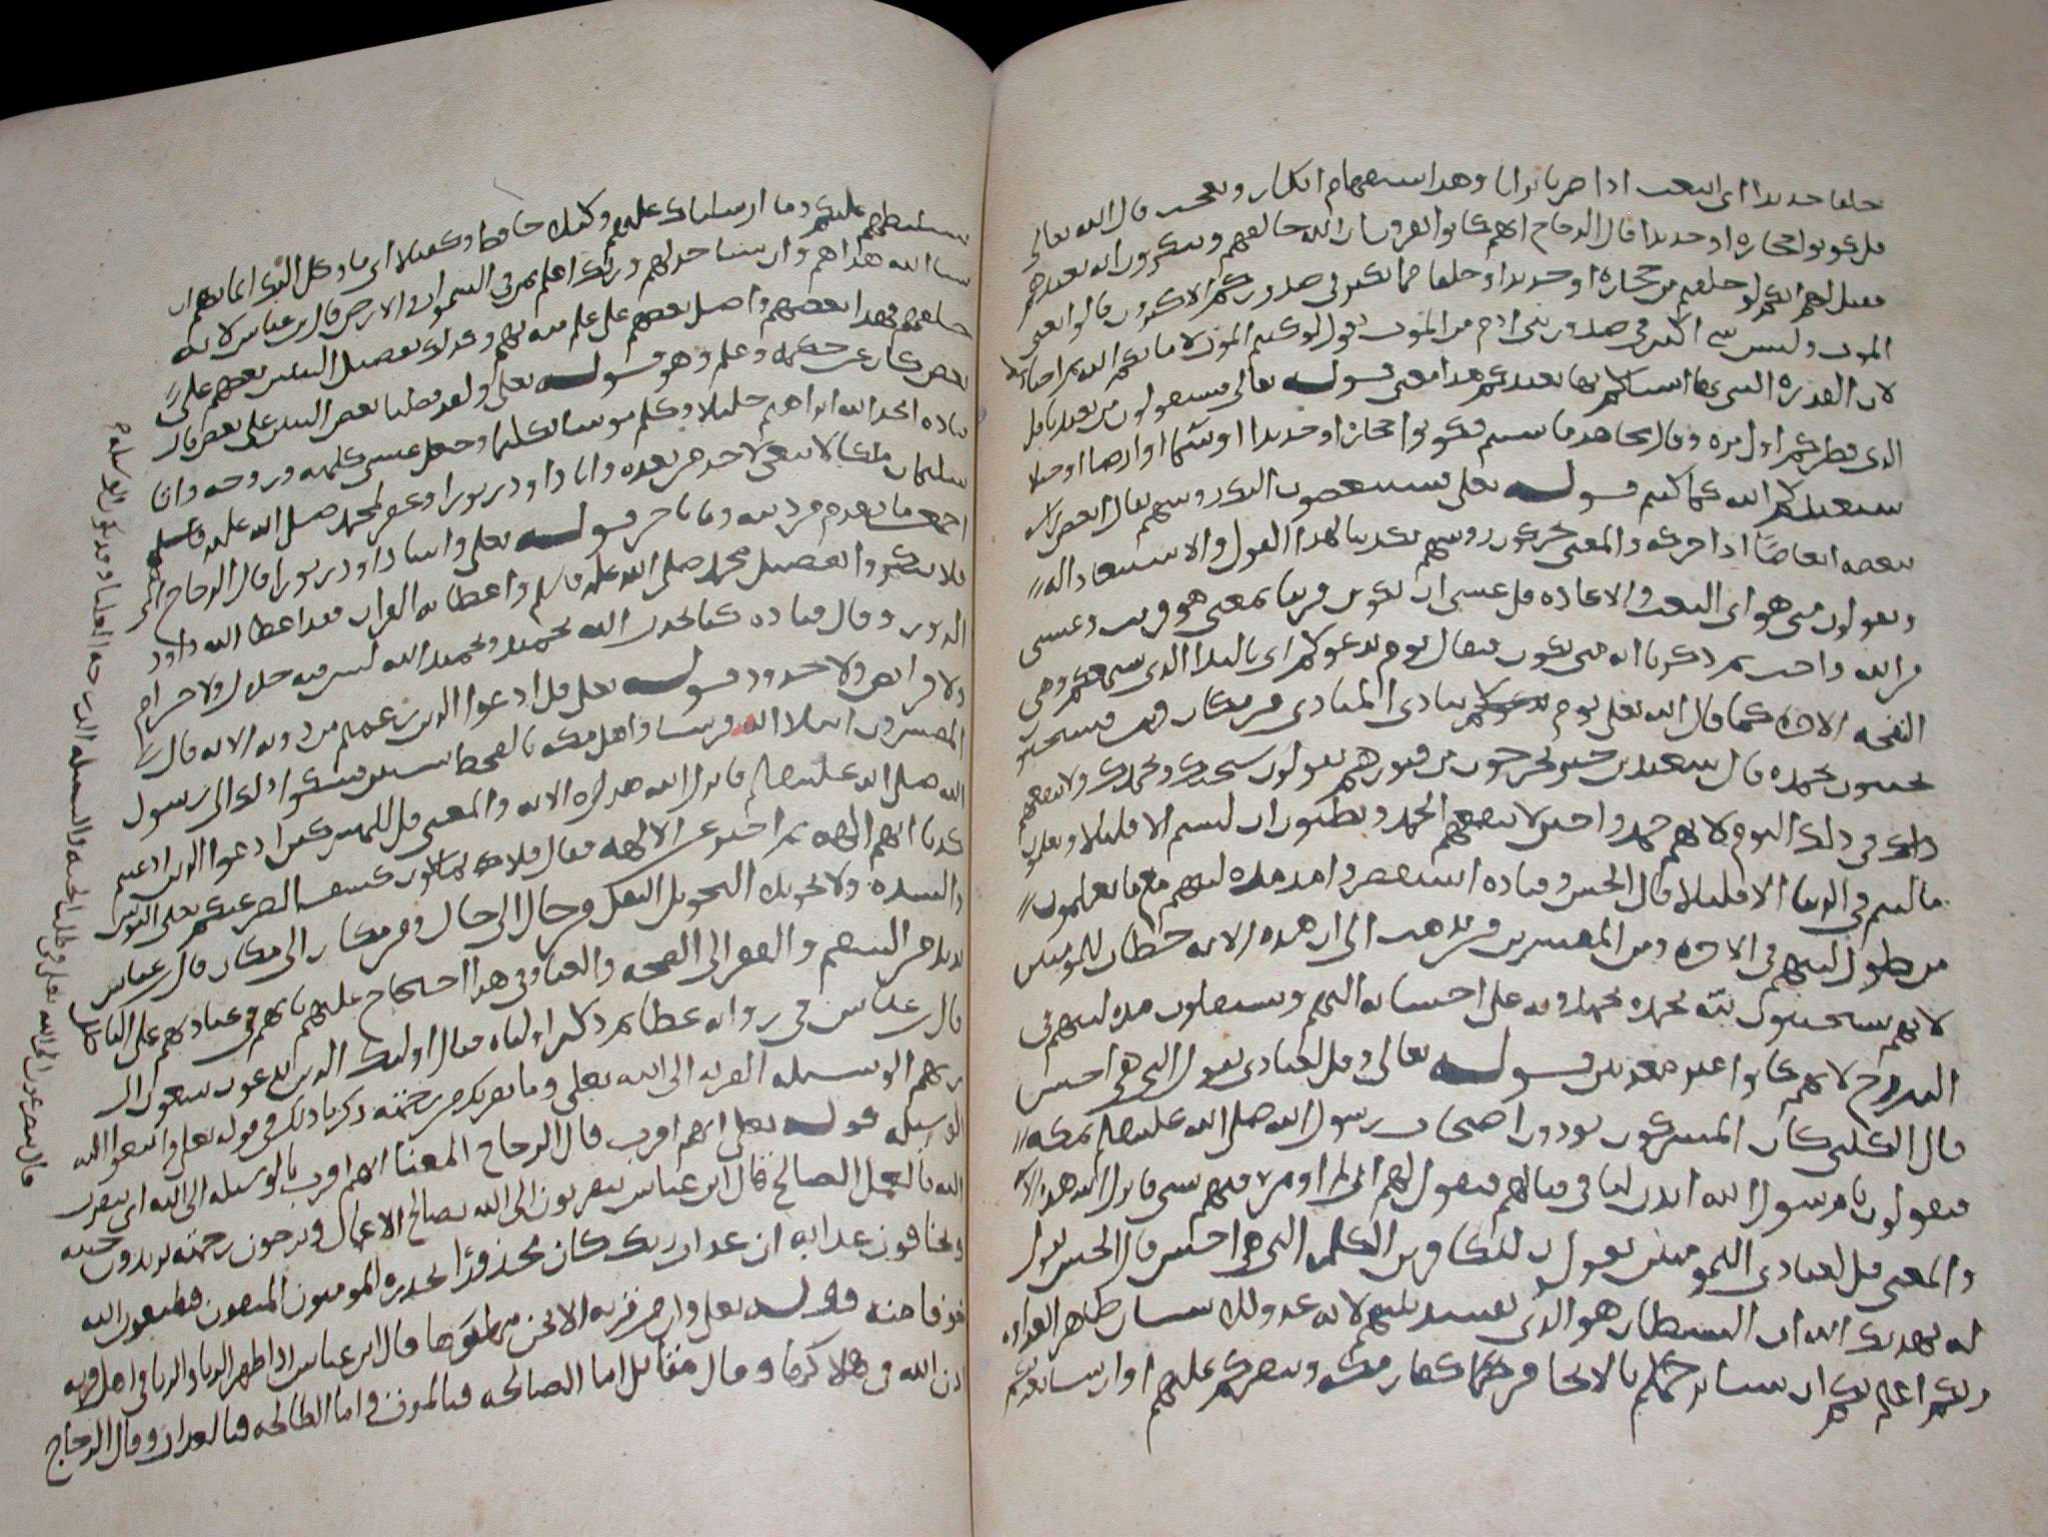 خلقا جديدا اى انبعث اذا صرنا ترابا وهدا استفهام انكار وتعجب قال الله تعالى
قل كونوا حجاره او حديدا قال الزجاج انهم كانوا يقرون ان الله خالقهم وينكرون انه يعيدهم
فقيل لهم انكم لو خلقتم من حجاره او حديدا او خلقا مما يكبر فى صدوركم الاكثرون قالوا يعنى
الموت وليس شى اكبر فى صدور بنى ادم من الموت يقول لو كنتم الموت لاماتكم الله ثم احياكم
لان القدره التى بها انشاكم بها يعيدكم هدا معنى قوله تعالى فسيقولون من يعيدنا قل
الدى فطركم اول مره وقال مجاهد ما شيتم فكونوا حجاره او حديدا او سما او ارضا او جبلا
سيعيدكم الله كما كنتم قوله تعلى فسينغضون اليك روسهم يقال انغض راسه
ينغضه انغاضا ادا حركه والمعنى يحركون روسهم تكذيبا لهدا القول والاستبعاد له
ويقولون متى هو اى البعث والاعاده قل عسى ان يكون قريبا بمعنى هو قريب وعسى
من الله واجب ثم دكر بانه متى يكون فقال يوم يدعوكم اى بالندا الدى يسمعكم وهى
النفخه الاخره كما قال الله تعلى يوم ينادى المنادى من مكان قريب فتستجيبون
تجيبون بحمده قال سعيد بن جبير يخرجون من قبورهم يقولون سبحنك وبحمدك ولا ينفعهم
ذلك فى دلك اليوم لانهم حمدوا حين لا ينفعهم الحمد وتظنون ان لبثتم الا قليلا
ما لبثتم فى الدنيا الا قليلا قال الحسن وقتاده استقصروا مده لبثهم مع ما يعلمون
من طول لبثهم فى الاخره ومن المفسرين من يدهب الى ان هده الايه خطاب للمومنين
لانهم يستجيبون لله بحمده يحمدونه على احسانه اليهم ويستقلون مده لبثهم فى
البرزخ لانهم كانوا غير معذبين قوله تعالى وقل لعبادى يقولوا التى هى احسن
قال الكلبى كان المشركون يودون اصحاب رسول الله صلى الله عليه وسلم بمكه
فيقولون يا رسول الله ايدن لنا فى قتالهم فيقول لهم انى لم اومر فيهم بشى فانزل الله هده الايه
والمعنى قل لعبادى المومنين يقولوا للكافرين الكلمه التى هى احسن قال الحسن يقول
له يهديك الله ان الشيطان هو الدى يفسد بينهم لانه عدو للانسان ظاهر العداوه
ربكم اعلم بكم ان يشا يرحمكم بالانجا من كفار مكه وينصركم عليهم او ان يشا يعذبكم
بتسليطهم عليكم وما ارسلناك عليهم وكيلا حافظا وكفيلا اى ما وكل اليك ايمانهم ان
شا الله هداهم وان شا خدلهم وربك اعلم بمن فى السموات والارض قال بن عباس لانه
خلقهم فهدا بعضهم واضل بعضهم على علم منه بهم وكدلك تفضيل النبيين بعضهم على
بعض كان عن حكمه وعلم وهو قوله تعلى ولقد فضلنا بعض النبيين على بعض قال
قتاده اتخد الله ابراهيم خليلا وكلم موسى تكليما وجعل عيسى كلمته وروحه واتا
سليمان ملكا لا ينبغى لاحد من بعده واتا داود زبورا وغفر لمحمد صلى الله عليه وسلم
ما تقدم من دنبه وما تاخر قوله تعلى واتينا داود زبورا قال الزجاج اى
فلا تنكروا تفضيل محمد صلى الله عليه وسلم واعطايه القران فقد اعطا الله داود
الزبور وقال قتاده كنا نحدث انه تحميد وتمجيد الله ليس فيه حلال ولا حرام
ولا فرايض ولا حدود قوله تعلى قل ادعوا الدين زعمتم من دونه الايه قال
المفسرون ابتلا الله قريشا واهل مكه بالقحط سنين فشكوا دلك الى رسول
الله صلى الله عليه وسلم فانزل الله هده الايه والمعنى قل للمشركين ادعوا الدين ادعيتم
كدبا انهم الهه ثم اخبر عن الالهه فقال فلا يملكون كشف الضر عنكم يعنى البوس
والشده ولا تحويلا التحويل النقل من حال الى حال ومن مكان الى مكان قال بن عباس
يريد من السقم والفقر الى الصحه والغنا وفى هدا احتجاج عليهم بانهم فى عبادتهم على الباطل
قال بن عباس فى روايه عطا ثم دكر اولياه فقال اوليك الدين يدعون يبتغون الى
ربهم الوسيله القربه الى الله تعلى وما يقربكم من رحمته دكرنا دلك فى قوله تعلى وابتغوا اليه
الوسيله قوله تعلى ايهم اقرب قال الزجاج المعنا ايهم اقرب بالوسيله الى الله اى يتقرب
اليه بالعمل الصالح قال ابن عباس يتقربون الى الله بصالح الاعمال ويرجون رحمته يريدون جنته
ويخافون عدابه ان عداب ربك كان محذورًا يحدره المومنون المتقون فيطيعون الله
خوفا منه قوله تعلى وان من قريه الا نحن مهلكوها قال ابن عباس ادا ظهر الزنا والربا فى اهل قريه
ادن الله فى هلاكها وقال مقاتل اما الصالحه فبالموت واما الطالحه فبالعداب وقال الزجاج